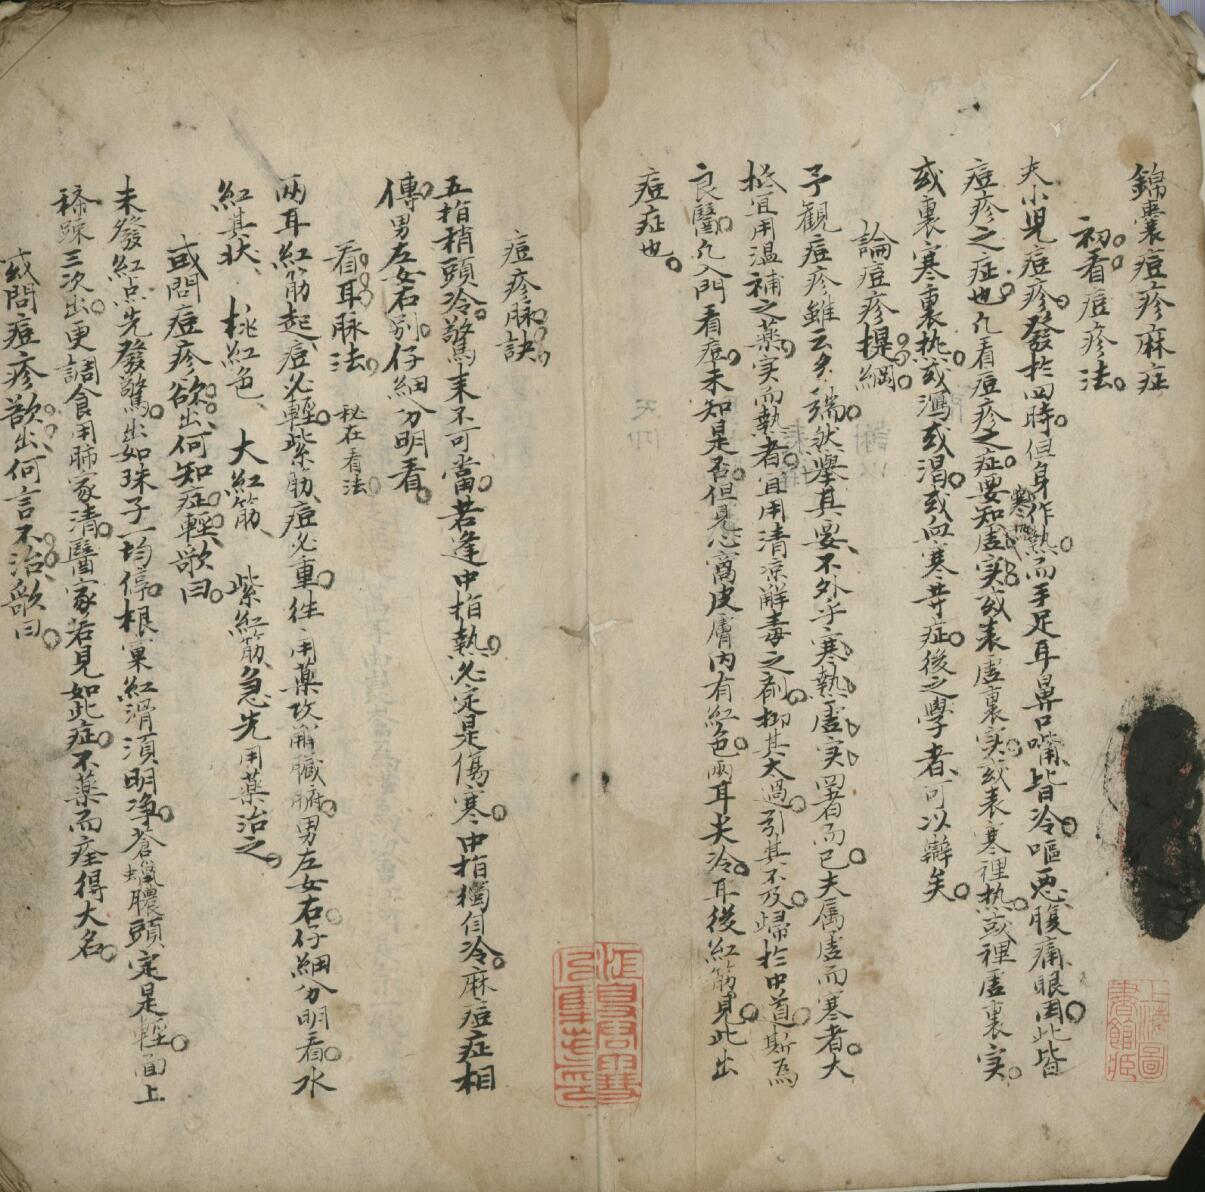 錦囊痘疹麻症
初看痘疹法。
夫小兒痘疹。發於四時。但身作熱。而手足耳鼻口嘴皆冷。嘔惡腹痛眼困。此皆
痘疹之症也。凡看痘疹之症。要知寒熱虛实。或表虛裏实。或表寒裡热。或裡虛裏实。
或裏寒裏热。或瀉或渴。或向寒等症。後之學者。可以辯矣。
論痘疹提綱。
予觀痘疹雖云多端。然舉其要。不外乎寒熱虛实畧而已。夫属虛而寒者。大
抵宜用温補之薬。实而熱者。宜用清凉解毒之剤。抑其太過。引其不及。歸於中道。斯為
良醫。凡入門看痘。未知是否。但見心窩皮膚內有紅色。兩耳尖冷。耳後紅筋。見此出
痘症也。
痘疹脉訣
五指稍頭冷。驚来不可當。若逢中指熱。必定是傷寒。中指獨自冷。麻痘症相
傳。男左女右别。仔細分明看。
看耳脉法。秘在看法。
兩耳紅筋起。痘必輕。紫肋、痘必重。徃用薬攻解臟腑。男左女右。仔細分明看。水
紅其状、桃紅色、大紅筋、紫紅筋、急先用薬治之。
或問痘疹欲出。何知症輕。歌曰。
未發紅点先發驚。出如珠子一均停。根窠紅滑須明净。蒼蠟膿頭定是輕。面上
稀踈三次出。更調食用肺家清。醫家若見如此症。不薬而痊得大名。
或問痘疹欲出。何言不治。歌曰。
上海圖
書館藏